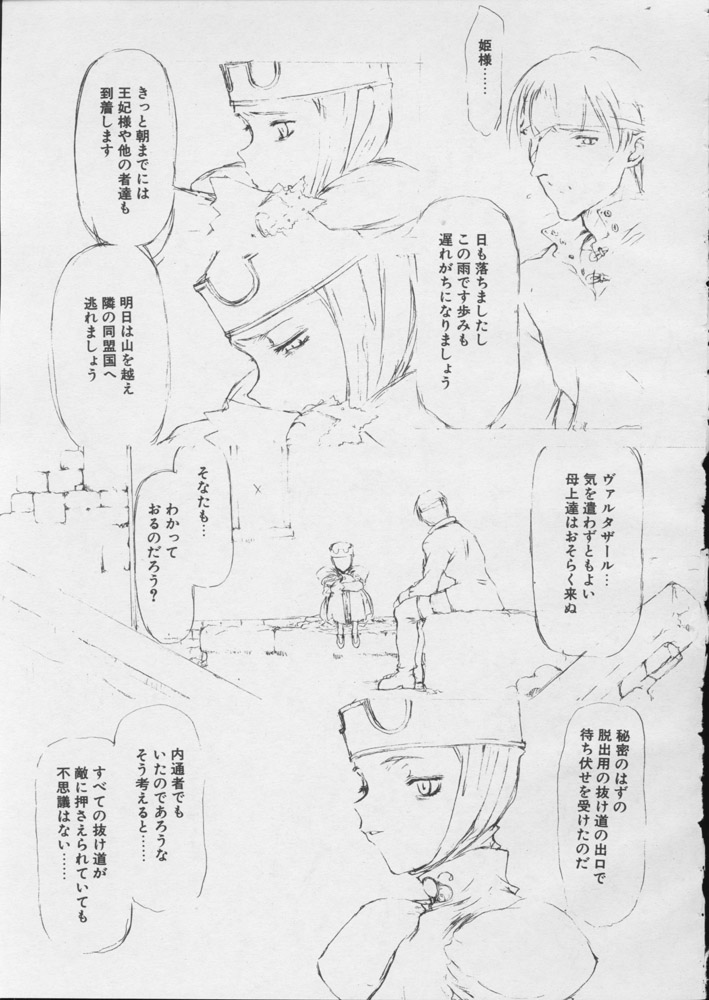 姫様……
日も落ちましたし
この雨です歩みも
遅れがちになりましょう
きっと朝までには
王妃様や他の者達も
到着します
明日は山を越え
隣の同盟国へ
逃れましょう
ヴァルタザール…
気を遣わずともよい
母上達はおそらく来ぬ
そなたも…
わかって
おるのだろう？
秘密のはずの
脱出用の抜け道の出口で
待ち伏せを受けたのだ
内通者でも
いたのであろうな
そう考えると……
すべての抜け道が
敵に押さえられていても
不思議はない………